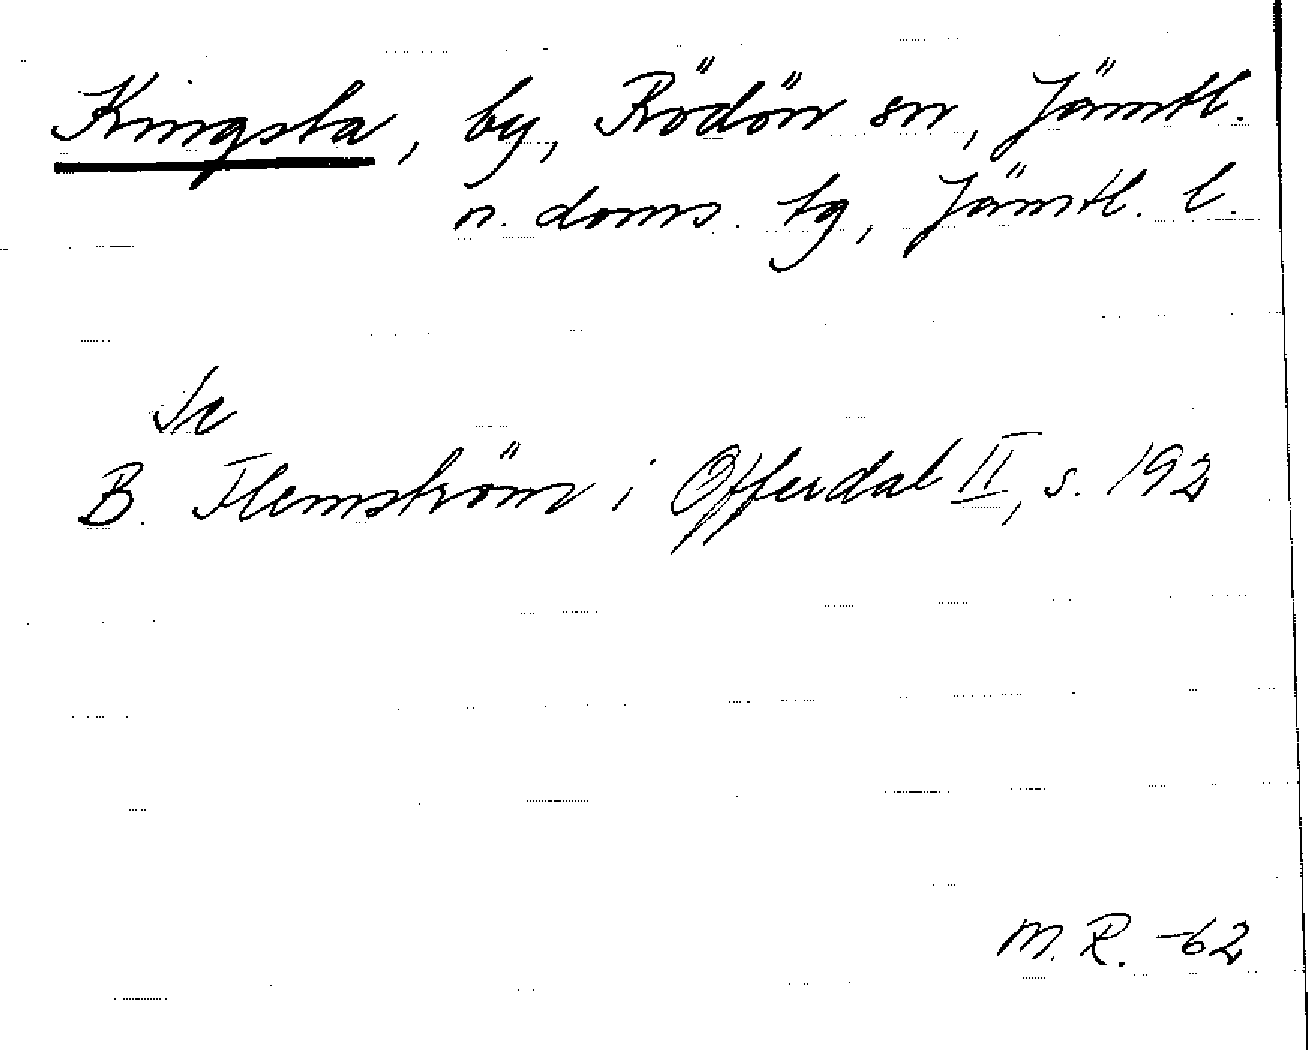 Kingsta, by, Rödön sn, Jämtl.
n. doms. tg, Jämtl. l.
Se
B. Flemström i Offerdal II, s. 192
M. R. -62